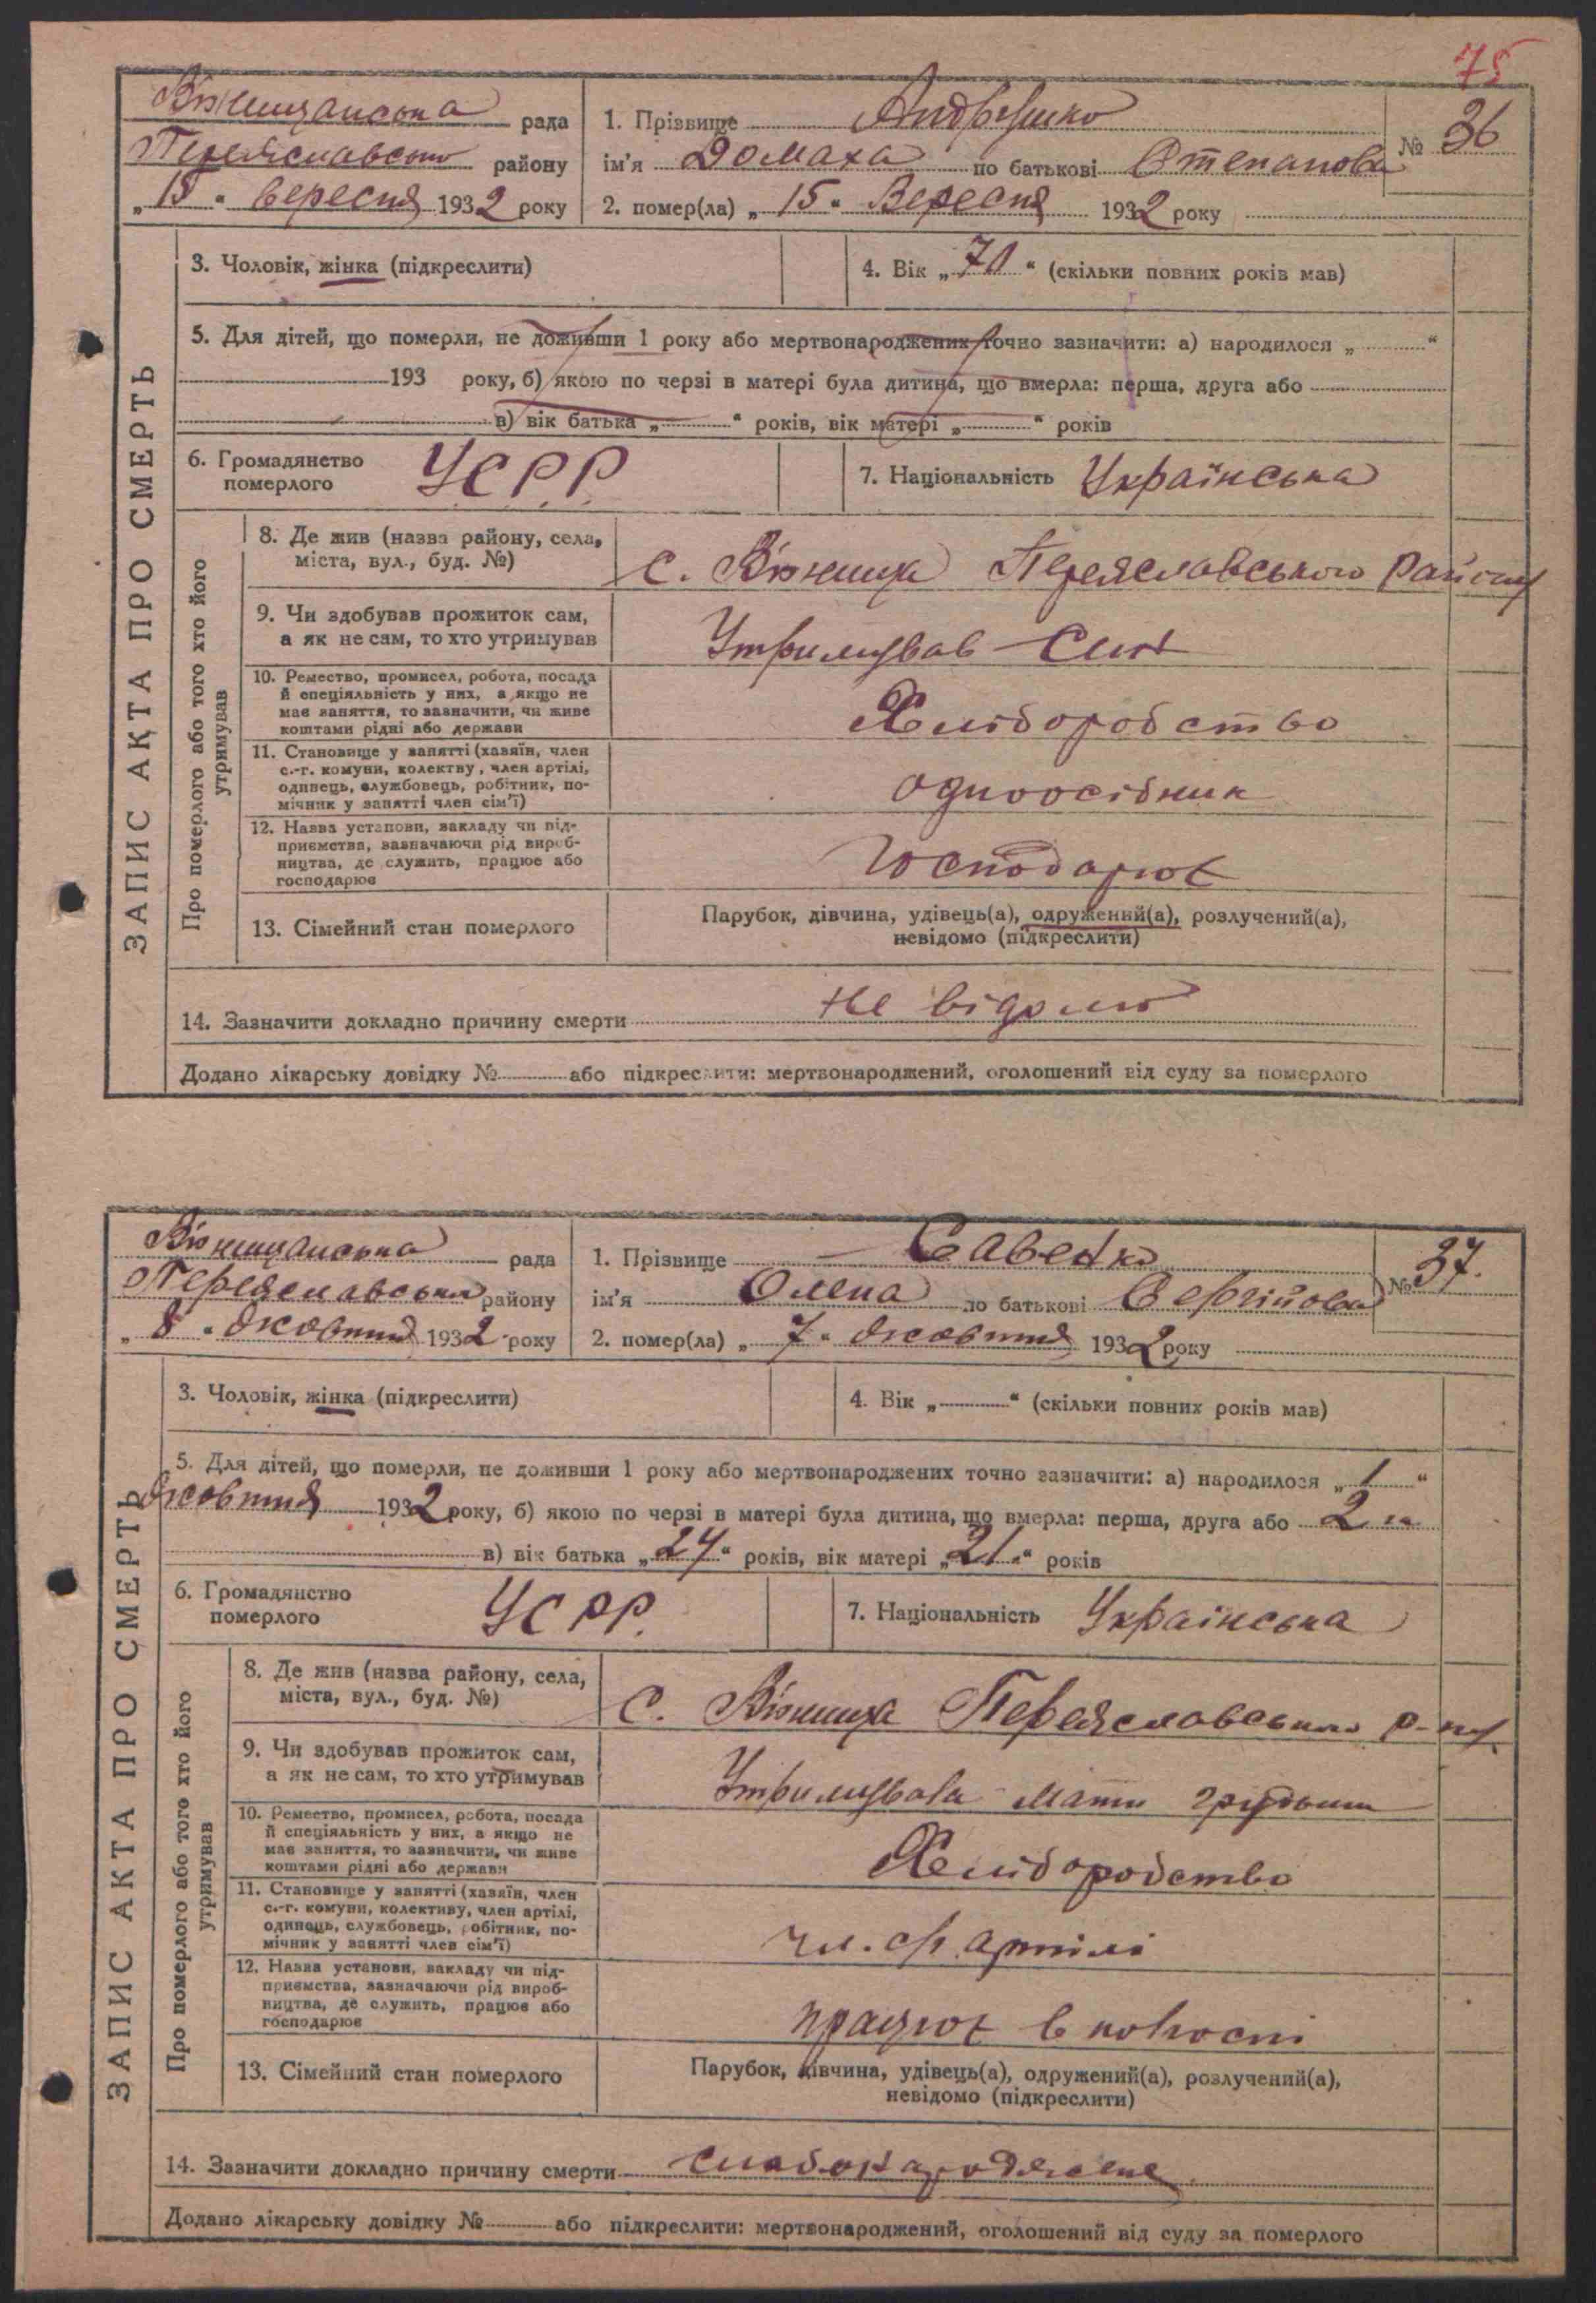 75
Вюнищанська рада
Переяславського району
„15“ вересня 1932 року
1. Прізвище Андрушко
ім'я Домаха по батькові Степанова
№ 36
2. помер(ла) „15“ Вересня 1932 року
ЗАПИС АКТА ПРО СМЕРТЬ
3. Чоловік, жінка (підкреслити)
4. Вік „70“ (скільки повних років мав)
5. Для дітей, що померли, не доживши 1 року або мертвонароджених точно зазначити: а) народилося „ “
193 року, б) якою по черзі в матері була дитина, що вмерла: перша, друга або
в) вік батька „ “ років, вік матері „ “ років
6. Громадянство померлого УСРР
7. Національність Українська
Про померлого або того хто його утримував
8. Де жив (назва району, села, міста, вул., буд. №)
с. Вюнища Переяславського району
9. Чи здобував прожиток сам, а як не сам, то хто утримував
Утримував син
10. Ремество, промисел, робота, посада й спеціяльність у них, а якщо не має заняття, то зазначити, чи живе коштами рідні або держави
Хліборобство
11. Становище у занятті (хазяїн, член с.-г. комуни, колективу, член артілі, одинець, службовець, робітник, помічник у занятті член сім'ї)
одноосібник
12. Назва установи, закладу чи підприємства, зазначаючи рід виробництва, де служить, працює або господарює
Господарює
13. Сімейний стан померлого
Парубок, дівчина, удівець(а), одружений(а), розлучений(а),
невідомо (підкреслити)
14. Зазначити докладно причину смерти не відомо
Додано лікарську довідку № або підкреслити: мертвонароджений, оголошений від суду за померлого
Вюнищанська рада
Переяславського району
„8“ жовтня 1932 року
1. Прізвище Савенко
ім'я Олена по батькові Сергійова
№ 37.
2. помер(ла) „7“ жовтня 1932 року
ЗАПИС АКТА ПРО СМЕРТЬ
3. Чоловік, жінка (підкреслити)
4. Вік „ “ (скільки повних років мав)
5. Для дітей, що померли, не доживши 1 року або мертвонароджених точно зазначити: а) народилося „1“
жовтня 1932 року, б) якою по черзі в матері була дитина, що вмерла: перша, друга або 2 а
в) вік батька „24“ років, вік матері „21“ років
6. Громадянство померлого УСРР.
7. Національність Українська
Про померлого або того хто його утримував
8. Де жив (назва району, села, міста, вул., буд. №)
С. Вюнища Переяславського р-ну
9. Чи здобував прожиток сам, а як не сам, то хто утримував
Утримувала мати
10. Ремество, промисел, робота, посада й спеціяльність у них, а якщо не має заняття, то зазначити, чи живе коштами рідні або держави
Хліборобство
11. Становище у занятті (хазяїн, член с.-г. комуни, колективу, член артілі, одинець, службовець, робітник, помічник у занятті член сім'ї)
чл. с/г. артілі
12. Назва установи, закладу чи підприємства, зазначаючи рід виробництва, де служить, працює або господарює
працює в колгоспі
13. Сімейний стан померлого
Парубок, дівчина, удівець(а), одружений(а), розлучений(а),
невідомо (підкреслити)
14. Зазначити докладно причину смерти слабонароджене
Додано лікарську довідку № або підкреслити: мертвонароджений, оголошений від суду за померлого